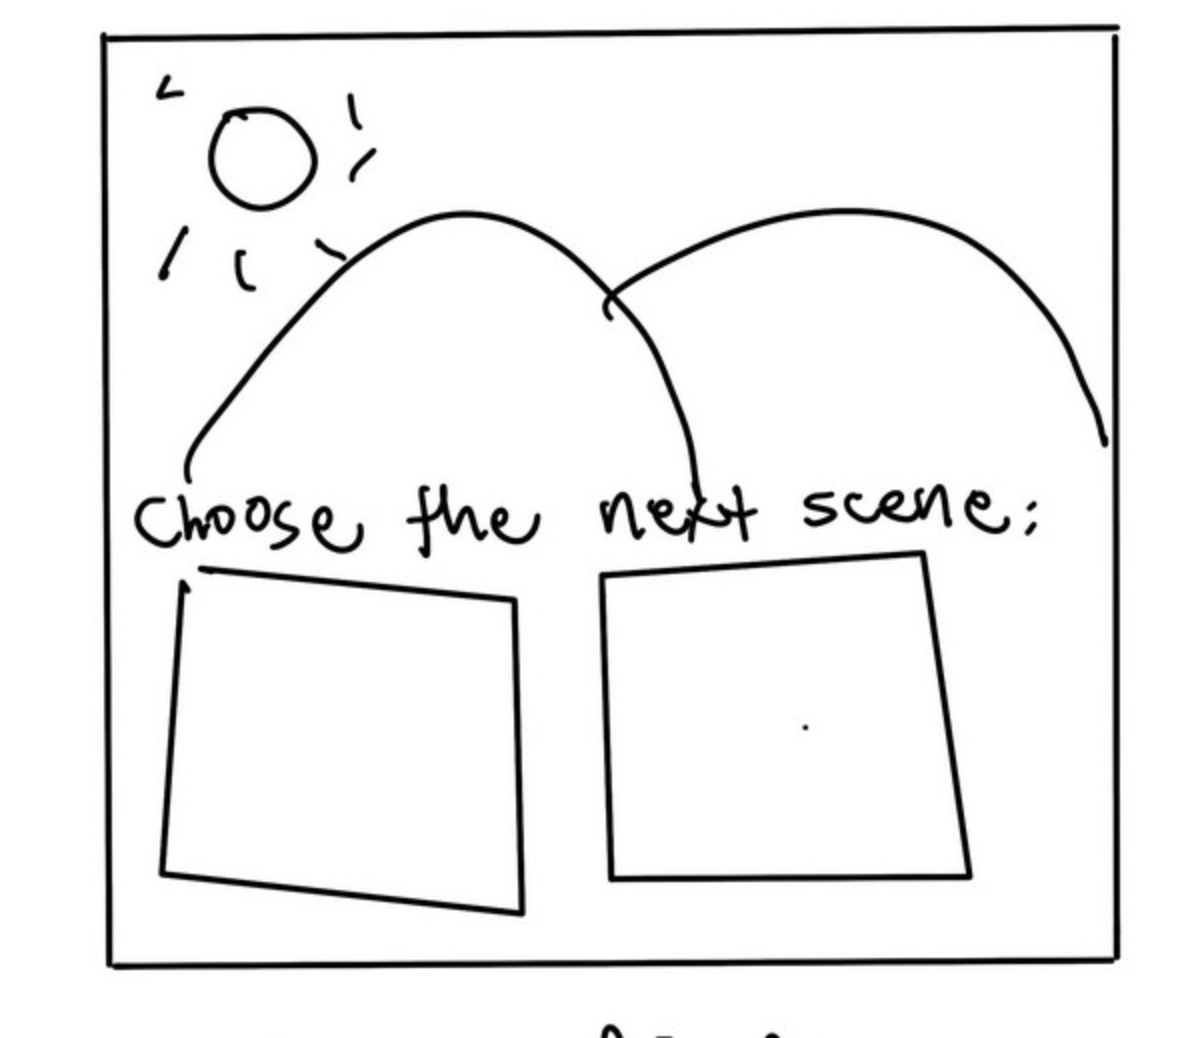 Choose the next scene: